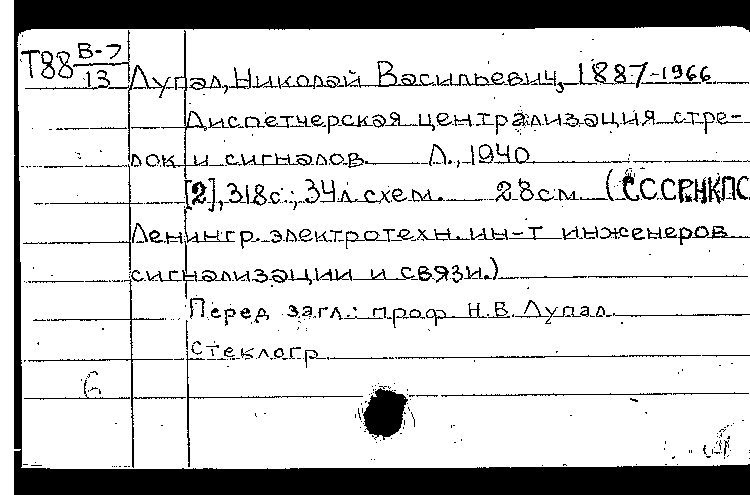 Т88 В-7/13 Лупал, Николай Васильевич, 1887-1966
Диспетчерская централизация стре-
лок и сигналов. Л., 1940.
[2], 318с.; 34л. схем. 28см. (СССР.НКПС
Ленингр. электротехн. ин-т инженеров
сигнализации и связи.)
Перед загл.: проф. Н.В. Лупал.
Стеклогр.
6